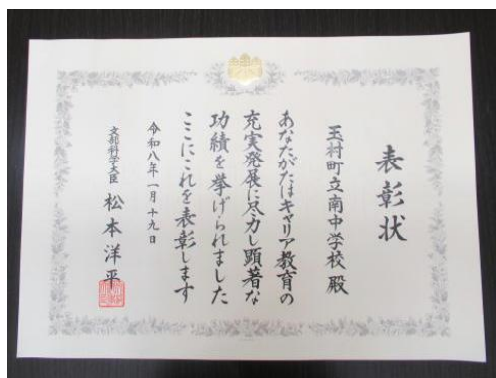 表彰状
玉村町立南中学校殿
あなたがたはキャリア教育の
充実発展に尽力し顕著な
功績を挙げられました
ここにこれを表彰します
令和八年一月十九日
文部科学大臣 松本洋平